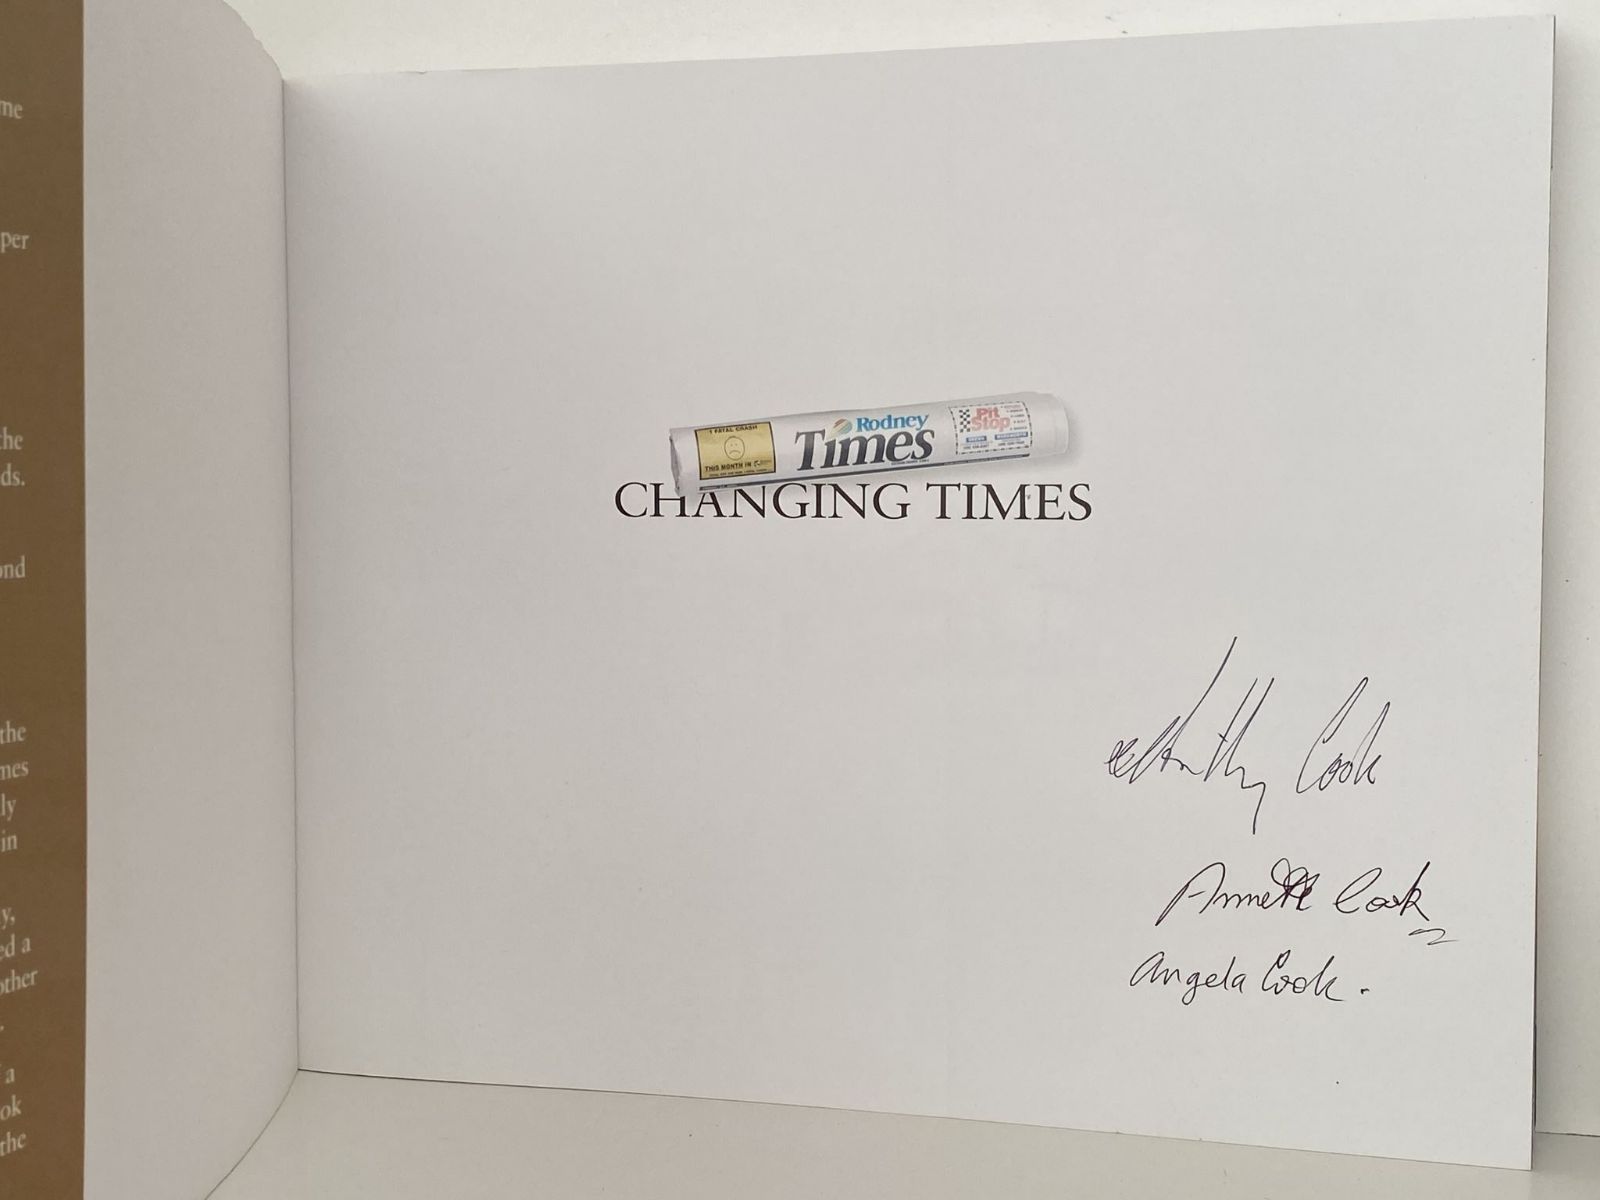 me
per
the
ds.
ond
the
mes
ly
in
y,
ed a
other
a
ok
the
1 FATAL CRASH
THIS MONTH IN
Rodney
Times
Pit
Stop
CHANGING TIMES
Anthony Cook
Annette Cook
Angela Cook.